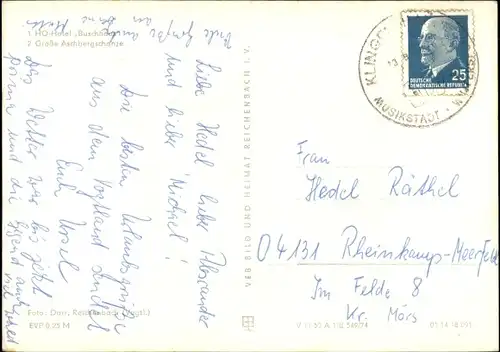 1 HO-Hotel "Buschhaus"
2 Große Aschbergschanze
Viele Grüße an
Liebe Hedel lieber Alexander
und lieber Michael!
Die besten Urlaubsgrüße
aus dem Vogtland sendet
Euch Ursel
Das Wetter war bis jetzt
prima und die Gegend
Foto: Darr, Reichenbach (Vogtl.)
EVP 0,25 M
VEB BILD UND HEIMAT REICHENBACH I. V.
V 11/50 A 1/B 549/74
01 14 18 093
KLINGE
MUSIKSTADT
25
DEUTSCHE
DEMOKRATISCHE REPUBLIK
Frau
Hedel Räthel
04131 Rheinkamp-Meerfeld
Im Felde 8
Kr. Mörs